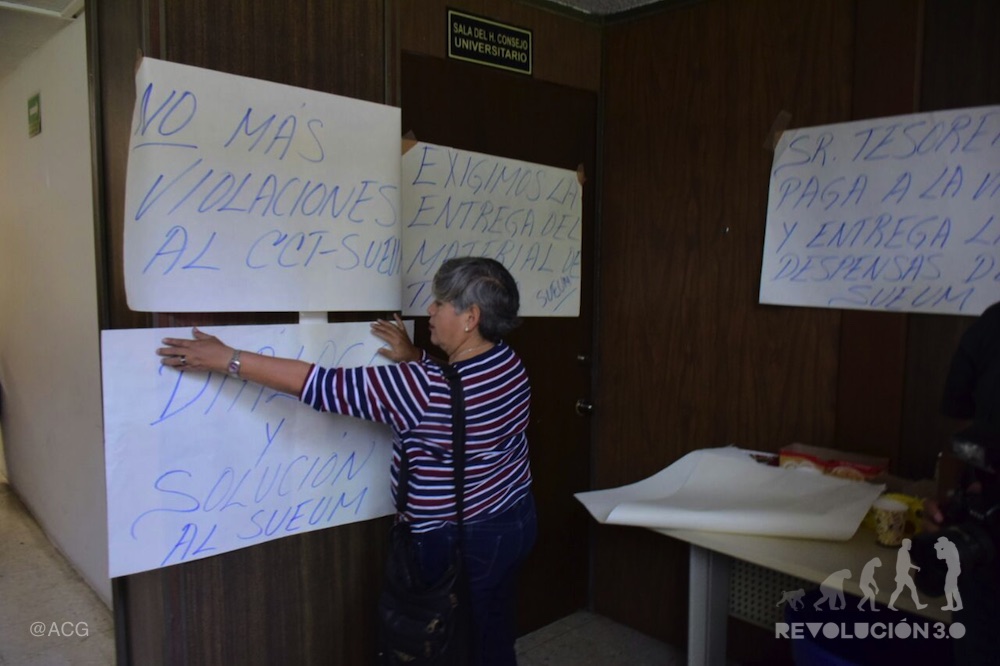 SALA DEL H. CONSEJO
UNIVERSITARIO
NO MÁS
VIOLACIONES
AL CCT-SUEUM
EXIGIMOS LA
ENTREGA DEL
MATERIAL DE
SUEUM
SR. TESORE
PAGA A LA
Y ENTREGA
DESPENSAS
SUEUM
DIALOGO
Y
SOLUCIÓN
AL SUEUM
@ACG
REVOLUCIÓN 3.0